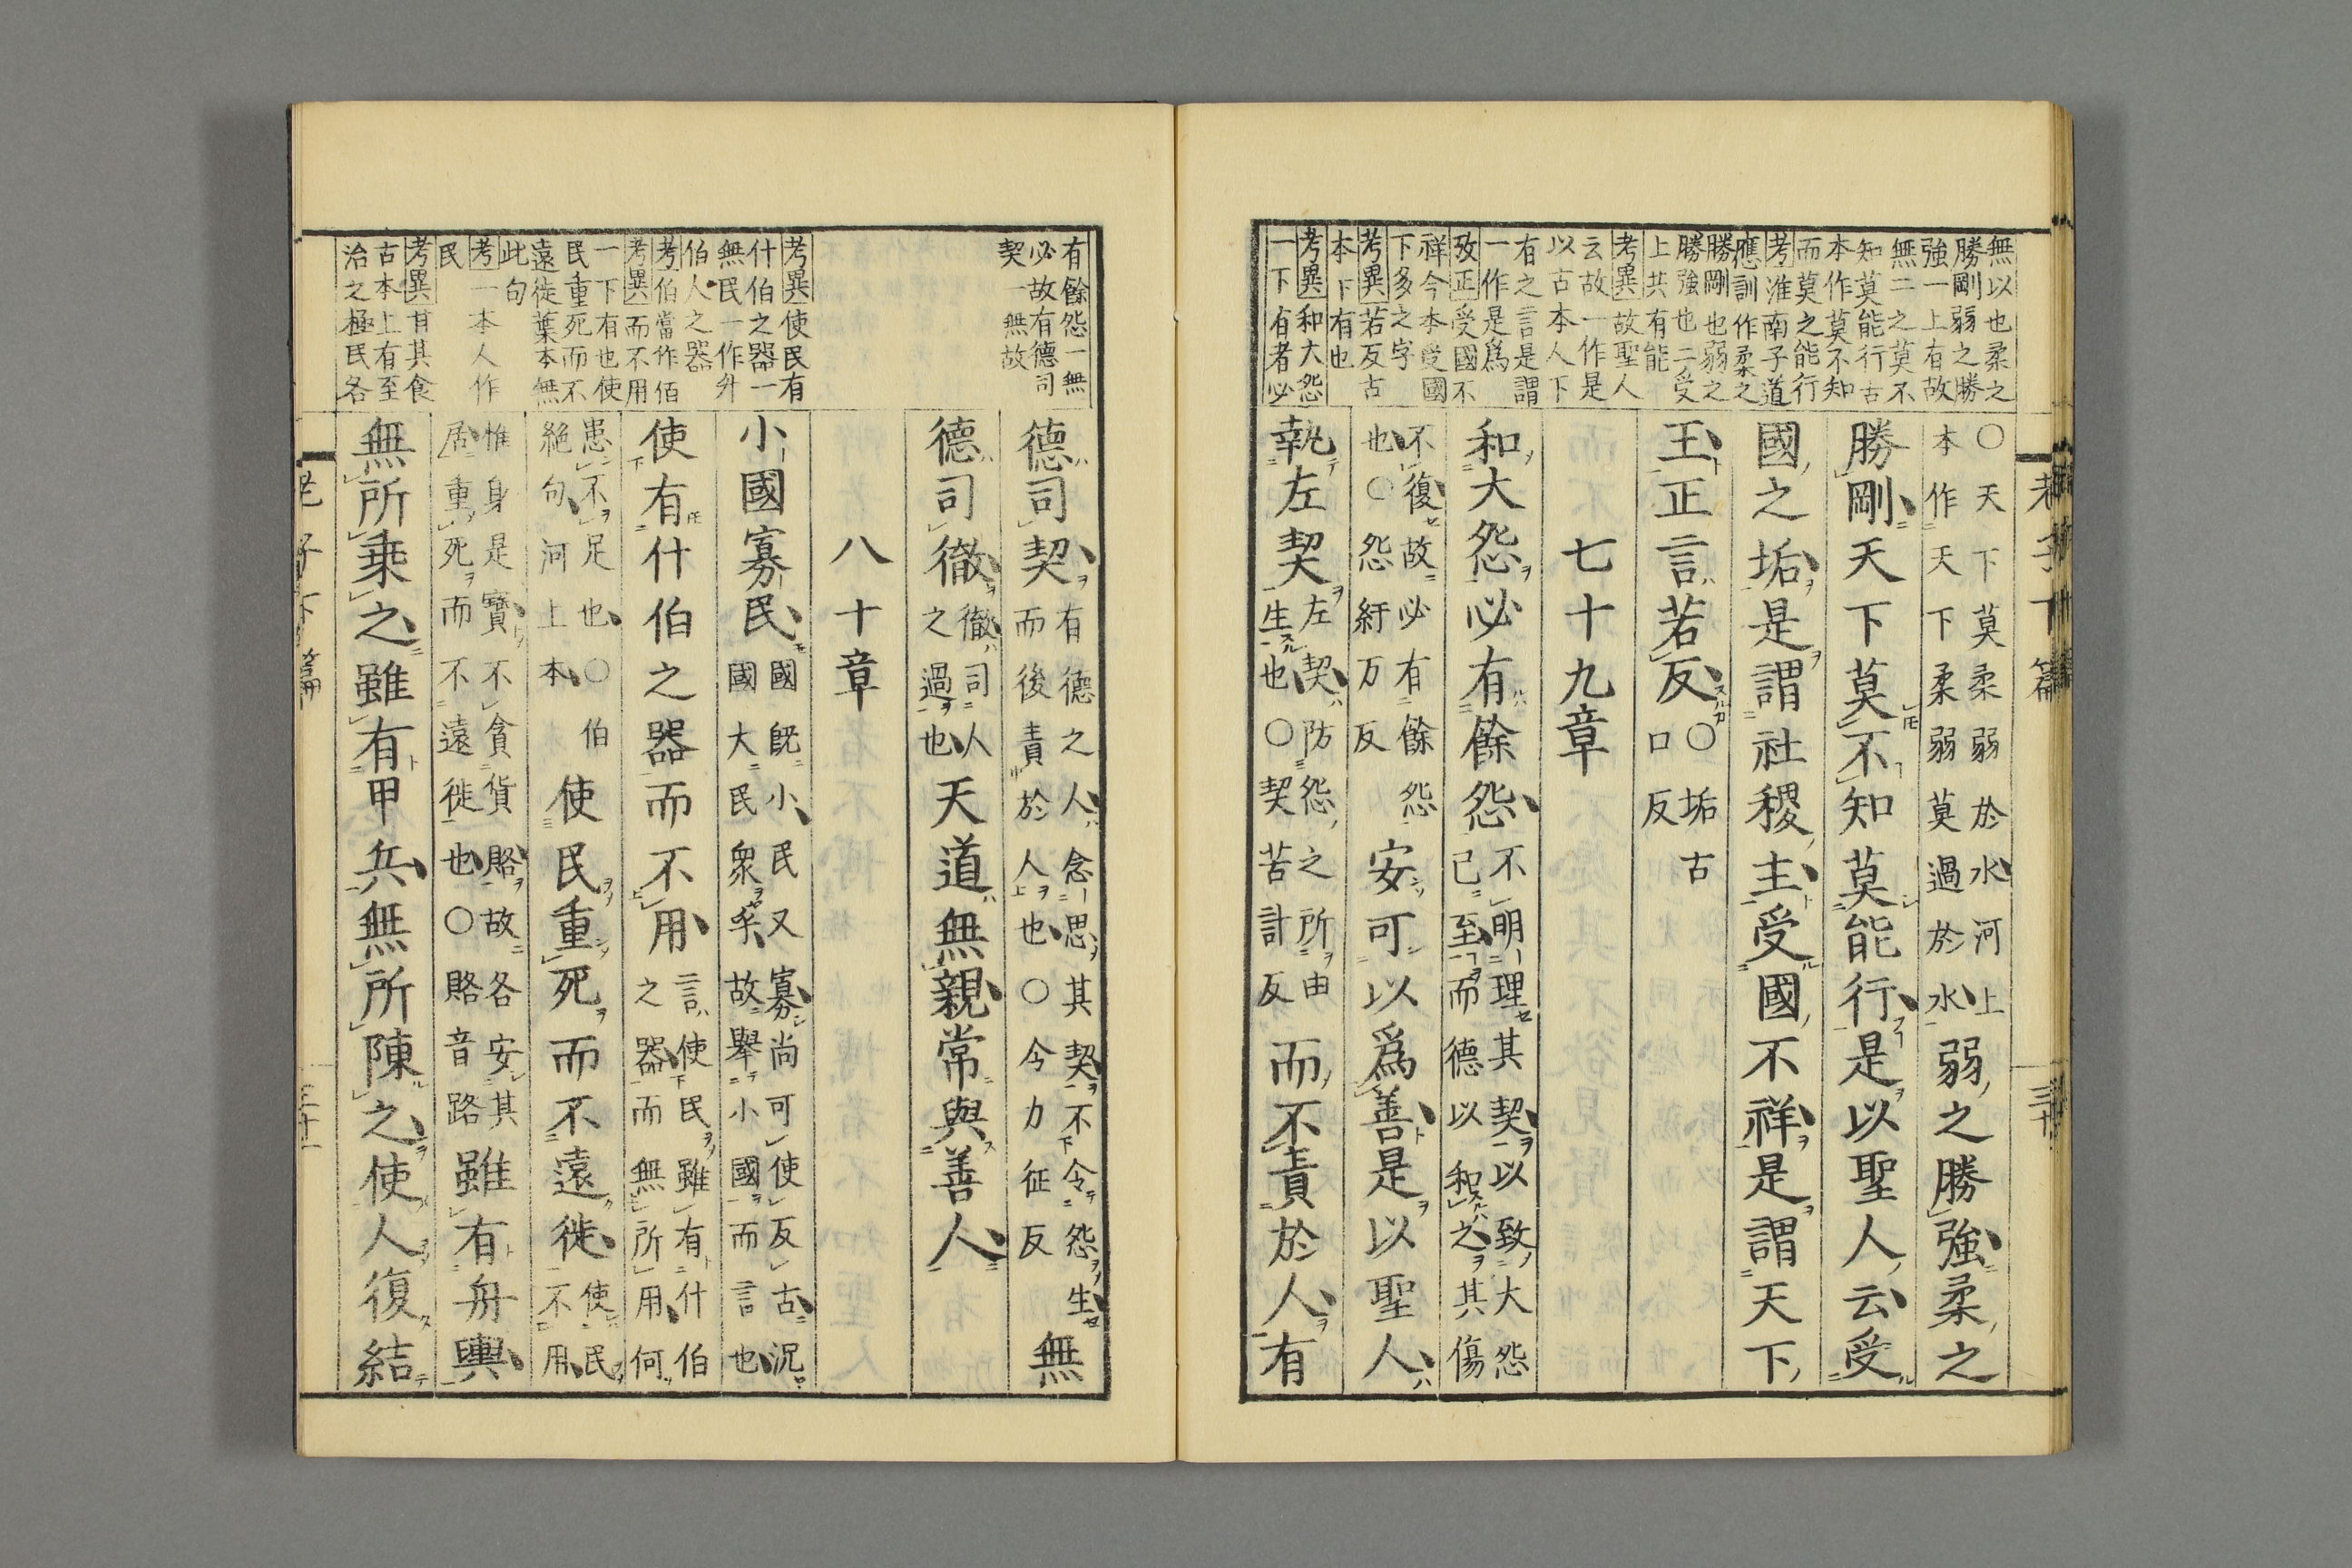 無以也柔之
勝剛弱之勝
強一上有故
無二之莫不
知莫能行古
本作莫不知
而莫之能行
考淮南子道
應訓作柔之
勝剛也弱之
勝強也二受
上共有能
考異故聖人
云故一作是
以古本人下
有之言是謂
一作是爲
攷正受國不
祥今本受國
下多之字
考異若反古
本下有也
考異和大怨
一下有者必
老子下篇
三十
○天下莫柔弱於水河上
本作天下柔弱莫過於水
弱之勝強柔之
勝剛天下莫不知莫能行是以聖人云受
國之垢是謂社稷主受國不祥是謂天下
王正言若反
○垢古
口反
七十九章
和大怨必有餘怨
不明理其契以致大怨
已至而德以和之其傷
不復故必有餘怨
也○怨紆万反
安可以爲善是以聖人
執左契
左契防怨之所由
生也○契苦計反
而不責於人有
有餘怨一無
必故有德司
契一無故
考異使民有
什伯之器一
無民一作舛
伯人之器
考伯當作佰
考異而不用
一下有也使
民重死而不
遠徙葉本無
此句
考一本人作
民
考異甘其食
古本上有至
治之極民各
德司契
有德之人念思其契不令怨生
而後責於人也○令力征反
無
德司徹
徹司人
之過也
天道無親常與善人
八十章
小國寡民
國既小民又寡尚可使反古況
國大民衆乎故舉小國而言也
使有什伯之器而不用
言使民雖有什伯
之器而無所用何
患不足也○伯
絶句河上本
使民重死而不遠徙
使民
不用
惟身是寶不貪貨賂故各安其
居重死而不遠徙也○賂音路
雖有舟輿
無所乗之雖有甲兵無所陳之使人復結
老子下篇
三十一